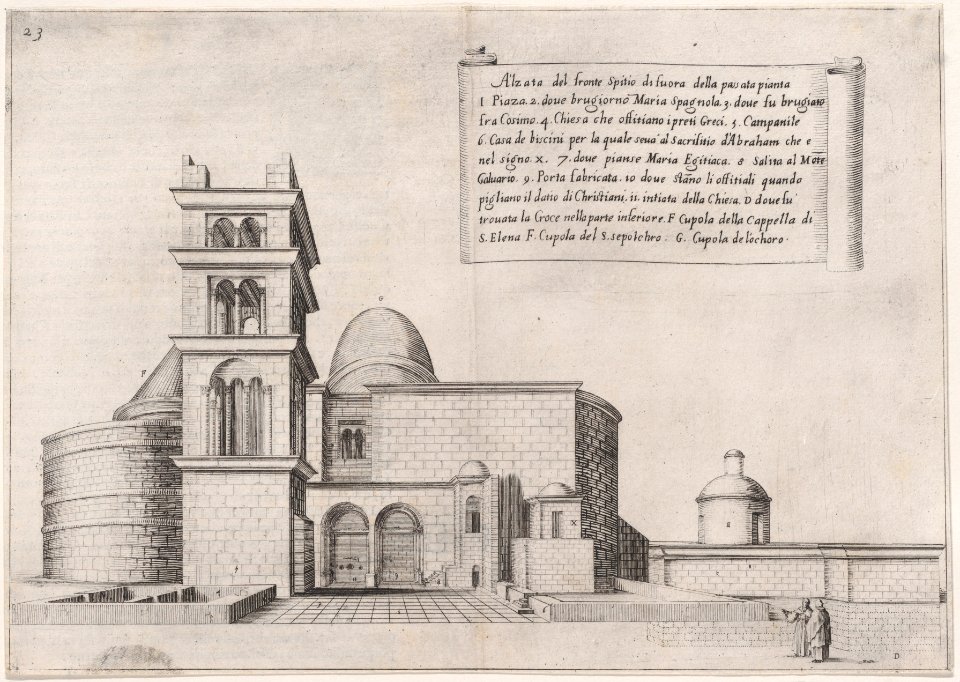 23
Alzata del fronte Spitio di fuora della passata pianta
1 Piaza. 2. doue brugiorno Maria Spagnola. 3. doue fu brugiato
fra Cosimo. 4. Chiesa che offitiano i preti Greci. 5. Campanile
6. Casa de biscini per la quale seua al Sacrifitio d'Abraham che e
nel signo. x. 7. doue pianse Maria Egitiaca. 8 Salita al Mote
Caluario. 9. Porta fabricata. 10 doue stano li offitiali quando
pigliano il datio di Christiani. 11. intiata della Chiesa. D doue fu
trouata la Croce nella parte inferiore. F Cupola della Cappella di
S. Elena F. Cupola del S. sepolchro. G. Cupola de lochoro.
G
F
X
D